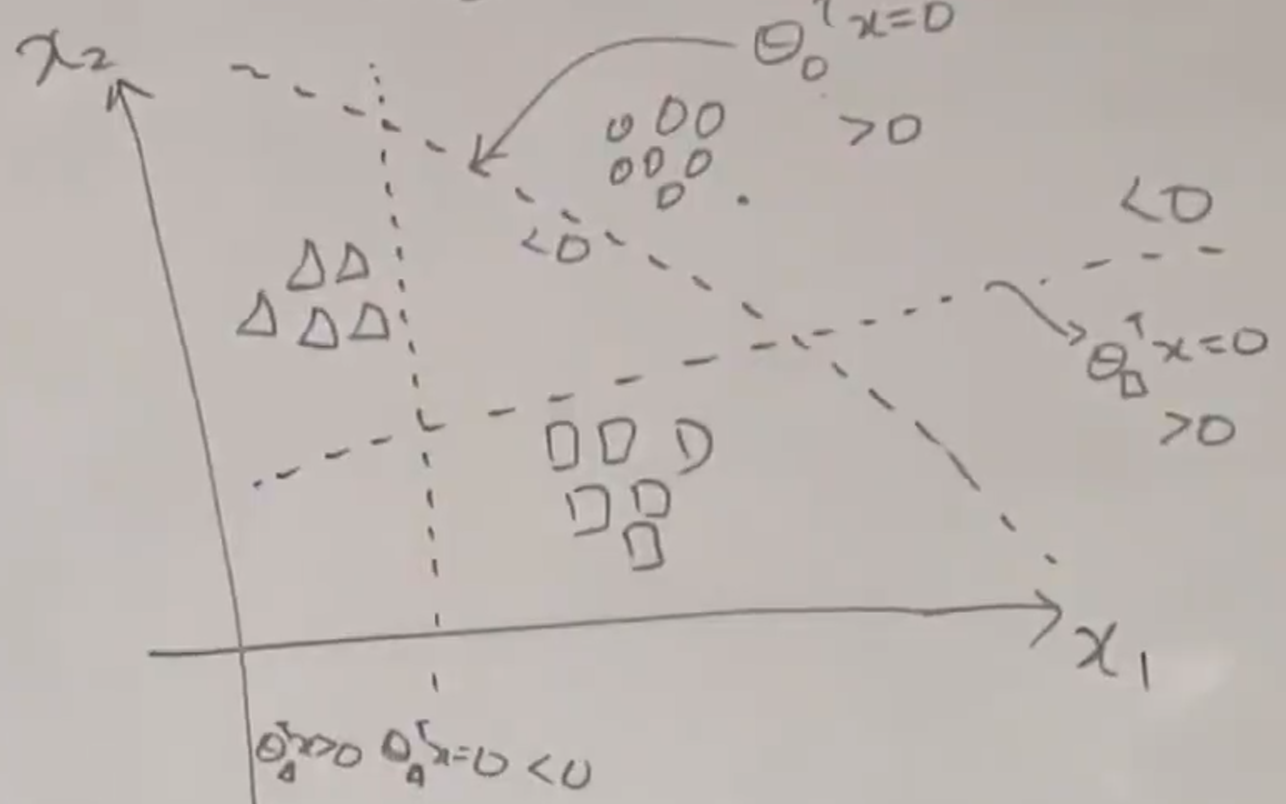 x₂
θ_○ᵀx=0
>0
<0
<0
θ_□ᵀx=0
>0
x₁
θ_△ᵀx>0 θ_△ᵀx=0 <0